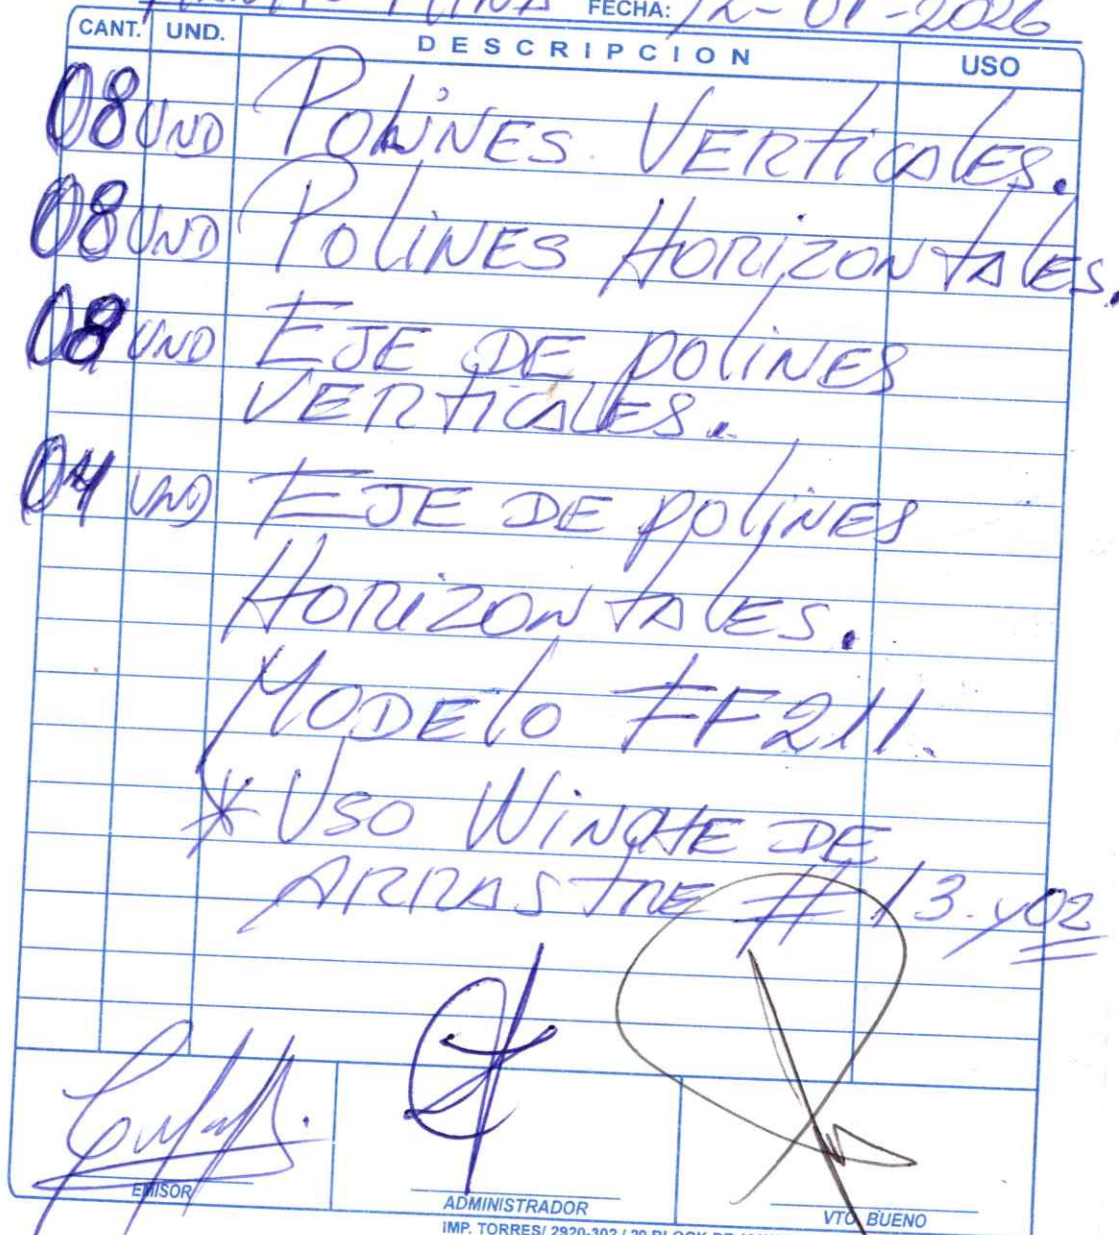 FECHA: 12-01-2026
CANT. UND. DESCRIPCION USO
08 UND POLINES VERTICALES.
08 UND POLINES HORIZONTALES.
08 UND EJE DE POLINES
VERTICALES.
04 UND EJE DE POLINES
HORIZONTALES.
MODELO FF211.
* USO WINCHE DE
ARRASTRE # 13 y 02
EMISOR ADMINISTRADOR VTO. BUENO
IMP. TORRES/ 2920-302 / 20 BLOCK DE